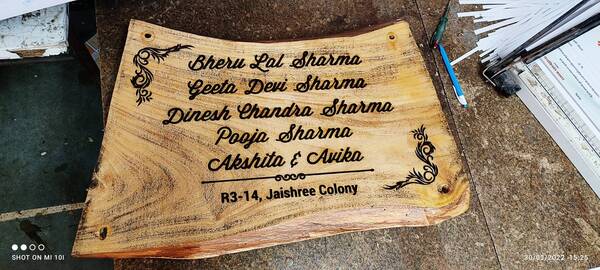 Bheru Lal Sharma
Geeta Devi Sharma
Dinesh Chandra Sharma
Pooja Sharma
Akshita & Avika
R3-14, Jaishree Colony
SHOT ON MI 10I
30/03/2022 15:25